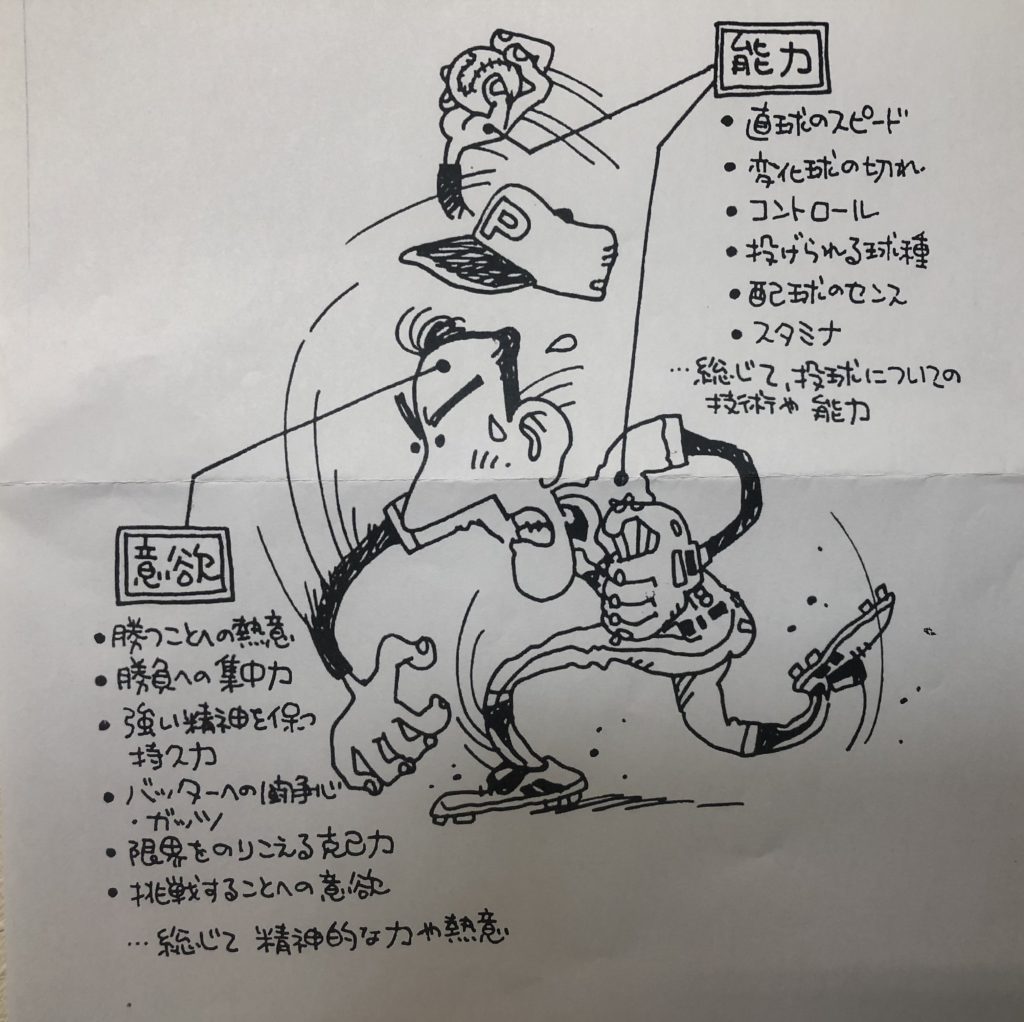 能力
• 直球のスピード
• 変化球の切れ
• コントロール
• 投げられる球種
• 配球のセンス
• スタミナ
…総じて、投球についての
技術や能力
P
意欲
• 勝つことへの熱意
• 勝負への集中力
• 強い精神を保つ
持久力
• バッターへの闘争心
・ガッツ
• 限界をのりこえる克己力
• 挑戦することへの意欲
…総じて 精神的な力や熱意